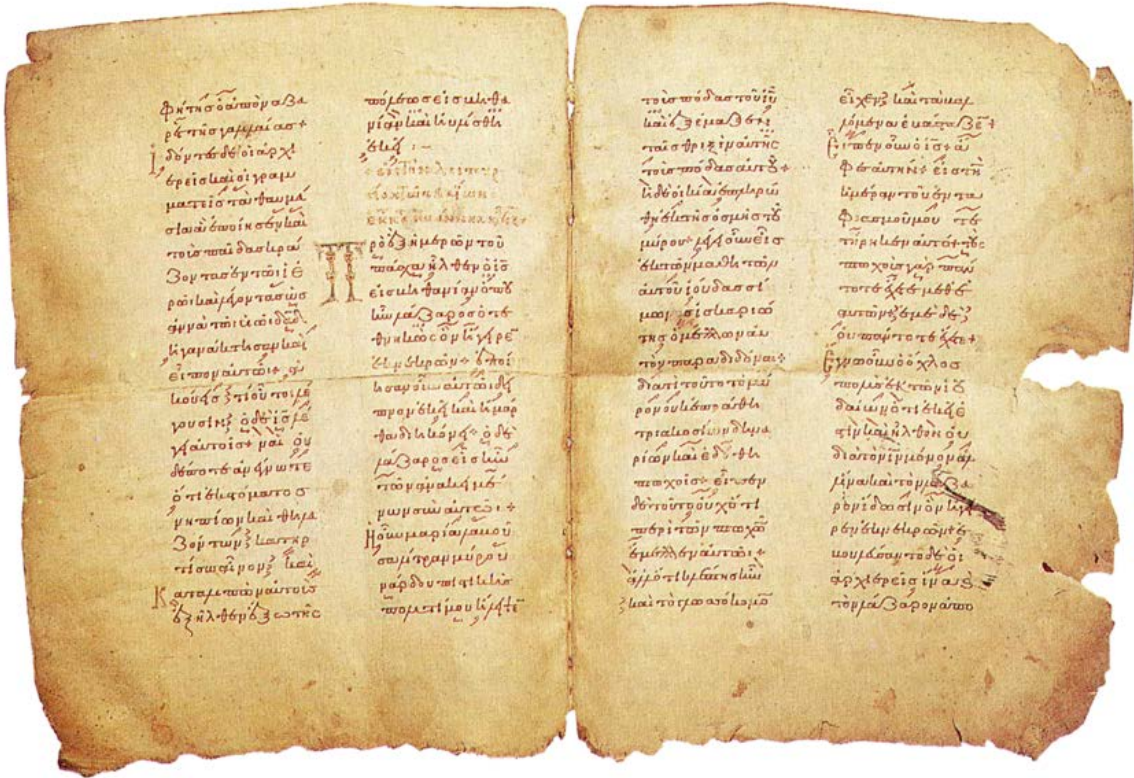 φήτης ὁ ἀπὸ ναζα
ρὲτ τῆς γαλιλαίας +
Ἰδόντες δὲ οἱ ἀρχι
ερεῖς καὶ οἱ γραμ
ματεῖς τὰ θαυμά
σια ἃ ἐποίησεν καὶ
τοὺς παῖδας κρά
ζοντας ἐν τῶι ἱε
ρῶι καὶ λέγοντας ὡς
αννὰ τῶι υἱῶι δαδ
ἠγανάκτησαν καὶ
εἶπον αὐτῶι + ἀ
κούεις τί οὗτοι λέ
γουσιν ὁ δὲ ις λέ
γει αὐτοῖς + ναὶ οὐ
δέποτε ἀνέγνωτε
ὅτι ἐκ στόματος
νηπίων καὶ θηλα
ζόντων κατηρ
τίσω αἶνον καὶ
Καταλιπὼν αὐτοὺς
ἐξῆλθεν ἔξω τῆς
πόλεως εἰς βηθα
νίαν καὶ ηὐλίσθη
ἐκεῖ :-
Πρὸ ἓξ ἡμερῶν τοῦ
πάσχα ἦλθεν ὁ ις
εἰς βηθανίαν ὅπου
ἦν λάζαρος ὁ τε
θνηκὼς ὃν ἤγειρε
ἐκ νεκρῶν + ἐποί
ησαν οὖν αὐτῶι δεῖ
πνον ἐκεῖ καὶ ἡ μάρ
θα διηκόνει + ὁ δὲ
λάζαρος εἷς ἦν
τῶν ἀνακειμέ
νων σὺν αὐτῶι +
Ἡ οὖν μαρία λαβοῦ
σα λίτραν μύρου
νάρδου πιστικῆς
πολυτίμου ἤλειψε
τοὺς πόδας τοῦ ιυ
καὶ ἐξέμαξε
ταῖς θριξὶν αὐτῆς
τοὺς πόδας αὐτοῦ +
ἡ δὲ οἰκία ἐπληρώ
θη ἐκ τῆς ὀσμῆς τοῦ
μύρου + λέγει οὖν εἷς
ἐκ τῶν μαθητῶν
αὐτοῦ ἰούδας σί
μωνος ἰσκαριώ
της ὁ μέλλων αὐ
τὸν παραδιδόναι +
διατί τοῦτο τὸ μύ
ρον οὐκ ἐπράθη
τριακοσίων δηνα
ρίων καὶ ἐδόθη
πτωχοῖς + εἶπεν
δὲ τοῦτο οὐχ ὅτι
περὶ τῶν πτωχῶ
ἔμελλεν αὐτῶι +
ἀλλ' ὅτι κλέπτης ἦν
καὶ τὸ γλωσσόκομο
εἶχεν καὶ τὰ βαλ
λόμενα ἐβάσταζε +
Εἶπεν οὖν ὁ ις + ἄ
φες αὐτήν + εἰς τὴν
ἡμέραν τοῦ ἐντα
φιασμοῦ μου τε
τήρηκεν αὐτό + τοὺς
πτωχοὺς γὰρ πάν
τοτε ἔχετε μεθ' ἑ
αυτῶν ἐμὲ δὲ
οὐ πάντοτε ἔχετε +
Ἔγνω οὖν ὁ ὄχλος
πολὺς ἐκ τῶν ἰου
δαίων ὅτι ἐκεῖ ἐ
στιν καὶ ἦλθον οὐ
διὰ τὸν ιν μόνον ἀλλ'
ἵνα καὶ τὸν λάζα
ρον ἴδωσιν ὃν ἤγει
ρεν ἐκ νεκρῶν + ἐ
βουλεύσαντο δὲ οἱ
ἀρχιερεῖς ἵνα
τὸν λάζαρον ἀπο